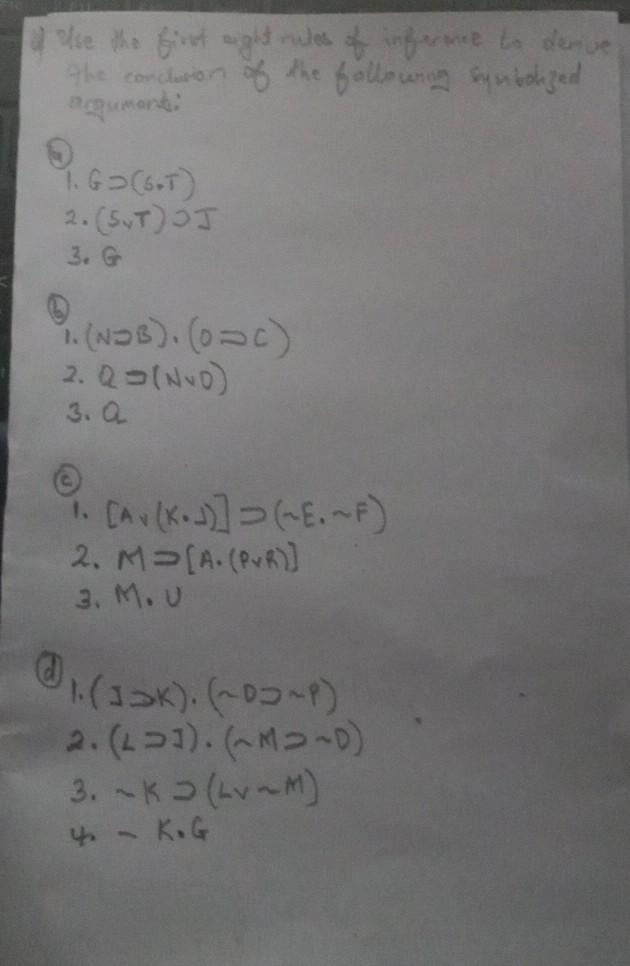 Use the first eight rules of inference to derive
the conclusion of the following symbolized
arguments:
(a)
1. G⊃(S.T)
2. (SvT)⊃J
3. G
(b)
1. (N⊃B).(O⊃C)
2. Q⊃(NvO)
3. Q
(c)
1. [Av(K.J)]⊃(~E.~F)
2. M⊃[A.(PvR)]
3. M.U
(d)
1. (J⊃K).(~O⊃~P)
2. (L⊃J).(~M⊃~O)
3. ~K⊃(Lv~M)
4. ~K.G